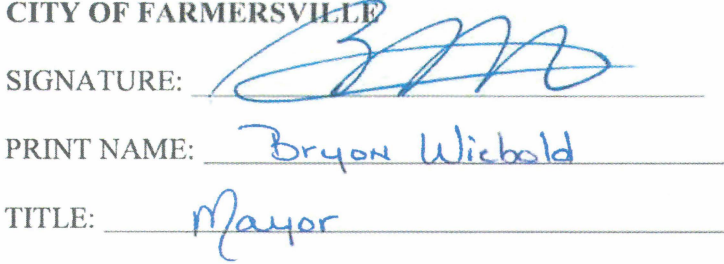 CITY OF FARMERSVILLE
SIGNATURE:
PRINT NAME: Bryon Wiebold
TITLE: Mayor